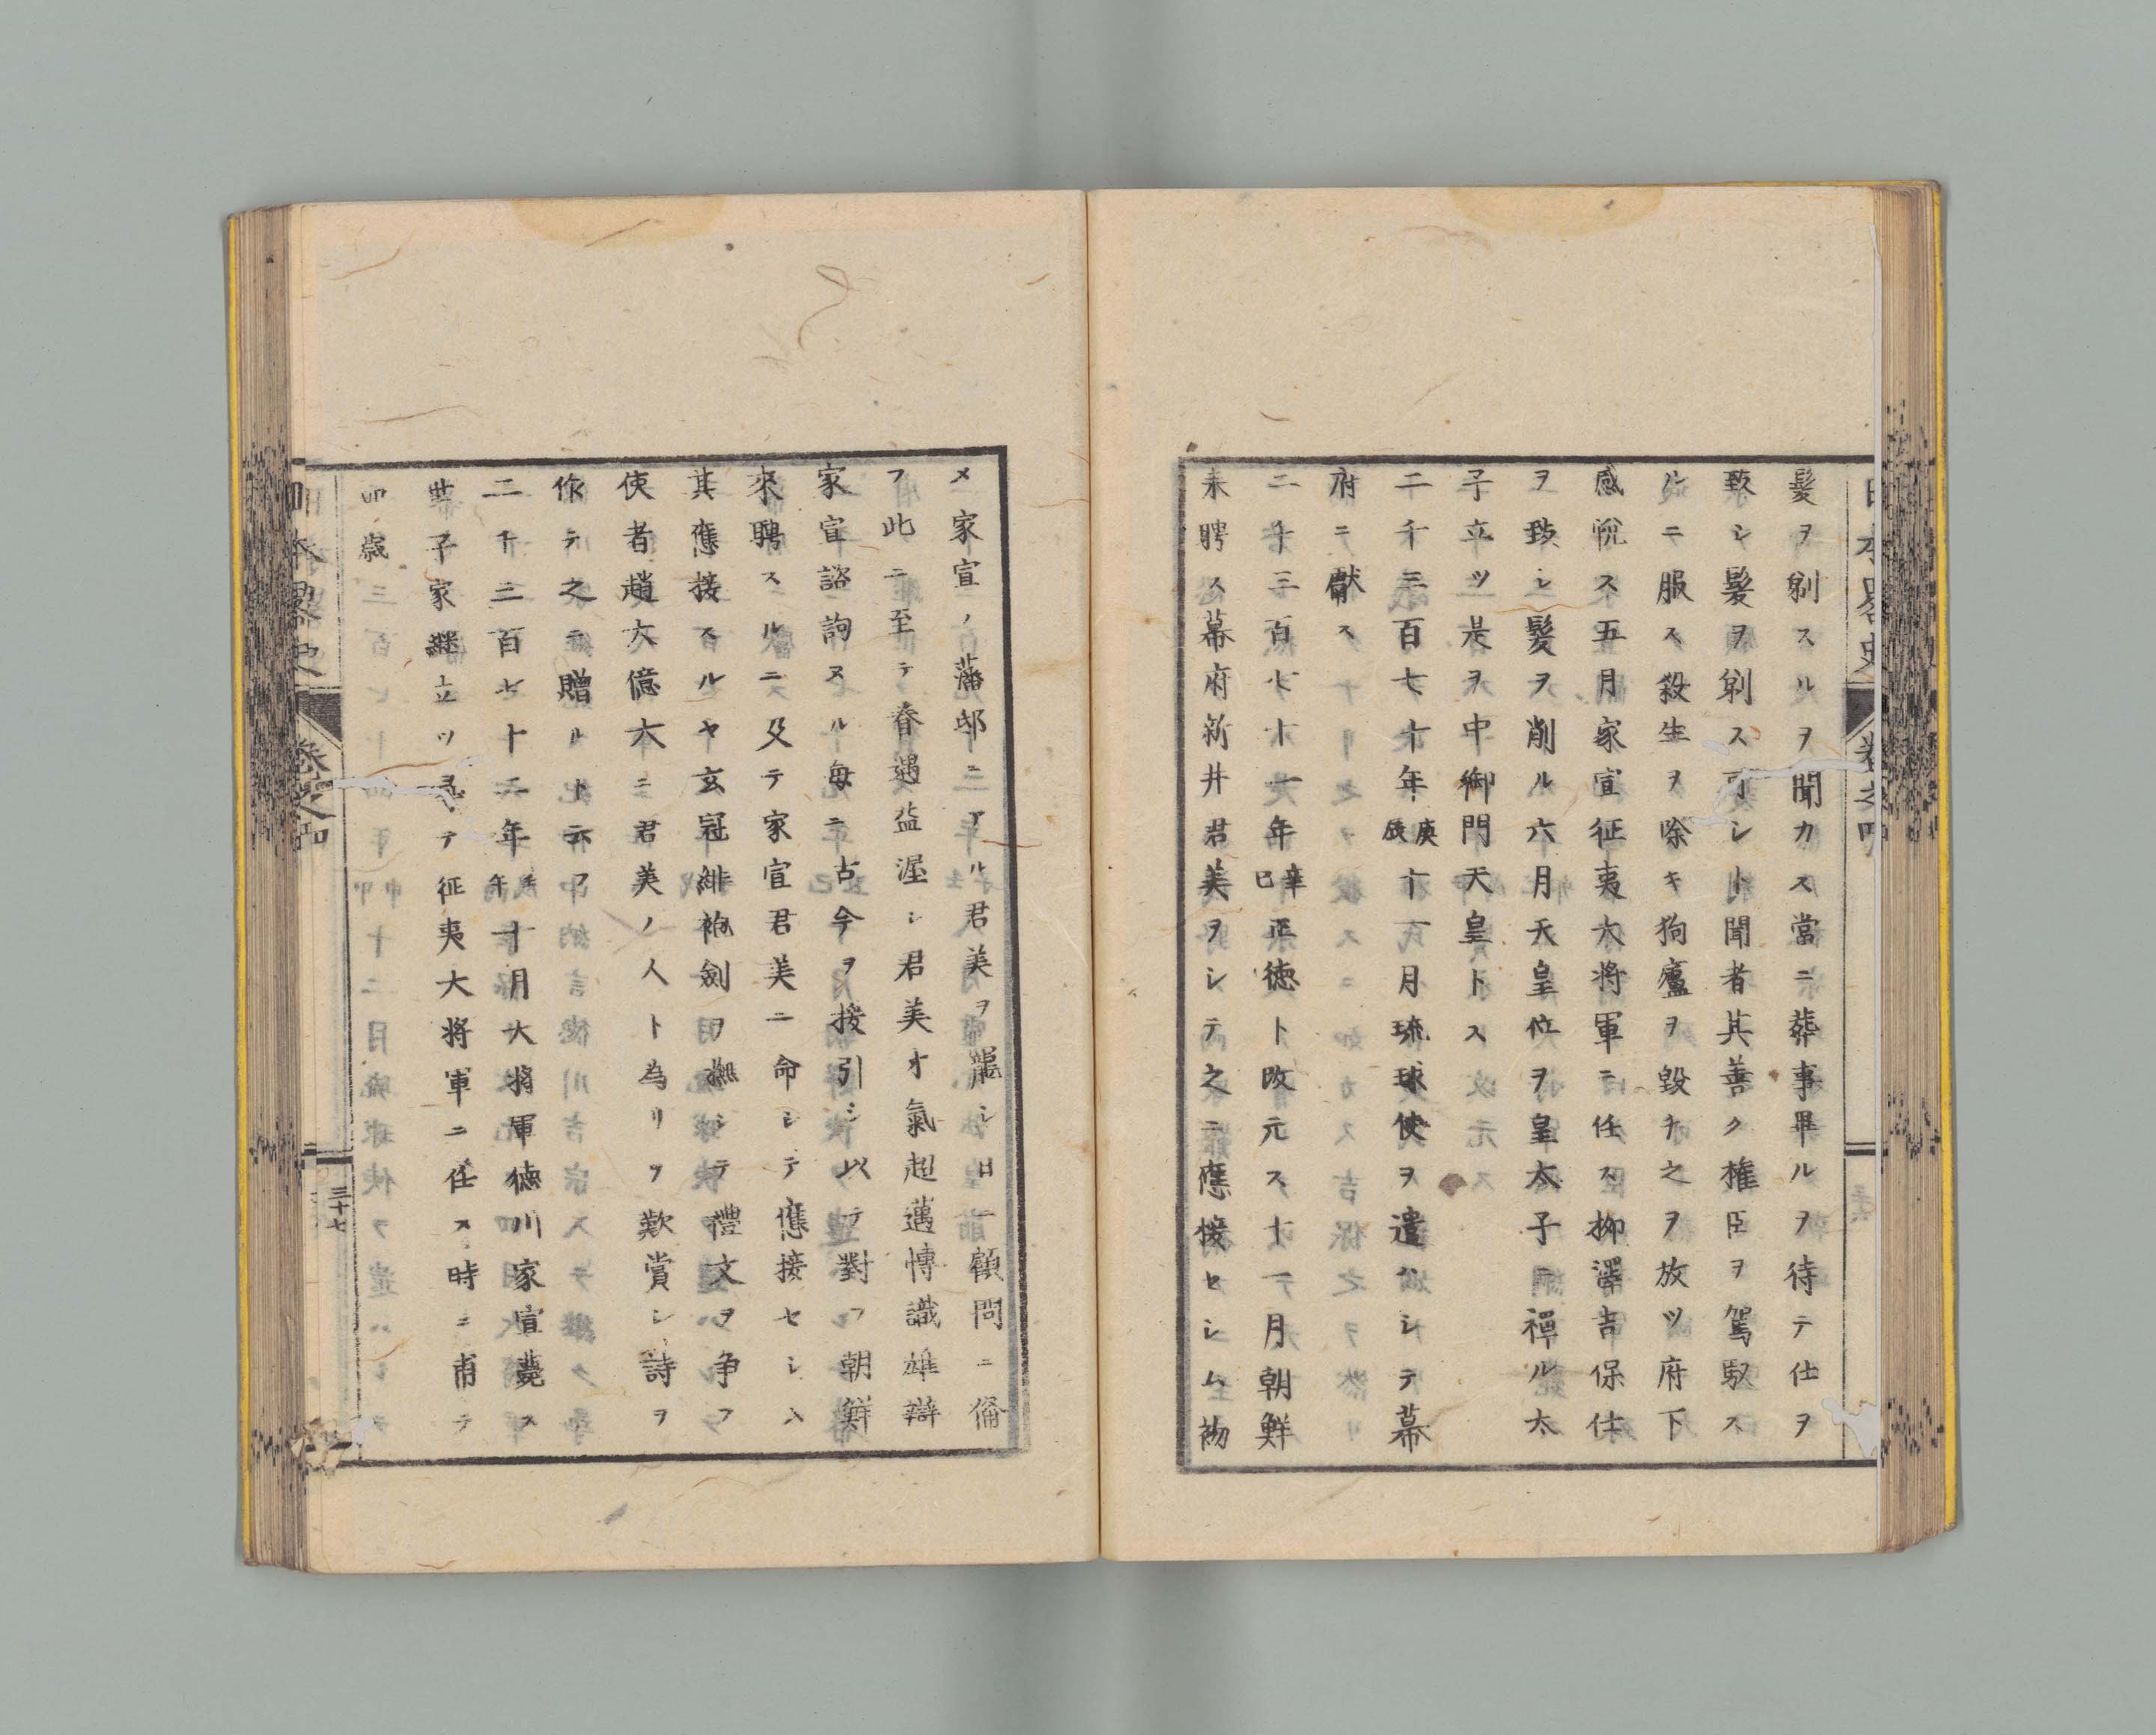 髮ヲ剃スルヲ聞カス當ニ葬事畢ルヲ待テ仕ヲ
致シ髮ヲ剃ス可シト聞者其善ク權臣ヲ駕馭ス
ルニ服ス殺生ヲ除キ狗廬ヲ毀チ之ヲ放ツ府下
感悅ス五月家宣征夷大將軍ニ任ス柳澤吉保仕
ヲ致シ髮ヲ削ル六月天皇位ヲ皇太子ニ禪ル太
子立ツ是ヲ中御門天皇トス
二千三百七十年庚辰十一月琉球使ヲ遣ハシテ幕
府ニ獻ス
二千三百七十一年辛巳正德ト改元ス十一月朝鮮
來聘ス幕府新井君美ヲシテ之ニ應接セシム初
メ家宣ノ藩邸ニアル君美ヲ寵シ日ニ顧問ニ備
フ此ニ至テ眷遇益渥シ君美才氣超邁博識雄辯
家宣諮詢スル每ニ古今ヲ援引シ以テ對フ朝鮮
來聘スルニ及テ家宣君美ニ命シテ應接セシム
其應接スルヤ玄冠緋袍劍ヲ撫シテ禮文ヲ爭フ
使者趙大億大ニ君美ノ人ト為リヲ歎賞シ詩ヲ
作テ之ニ贈ルト云フ
二千三百七十二年壬午十月大將軍德川家宣薨ス
世子家繼立ツ尋テ征夷大將軍ニ任ス時ニ甫テ
四歲
日本畧史
卷之四
三十七